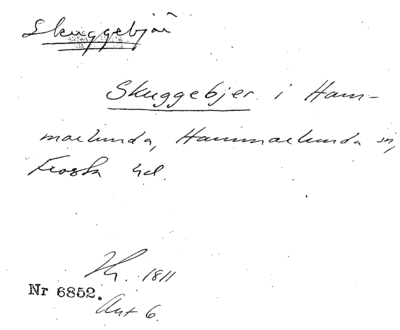 Skuggebjär
Skuggebjer i Ham-
marlunda, Hammarlunda sn,
Frosta hd.
1811
Nr 6852.
Akt 6